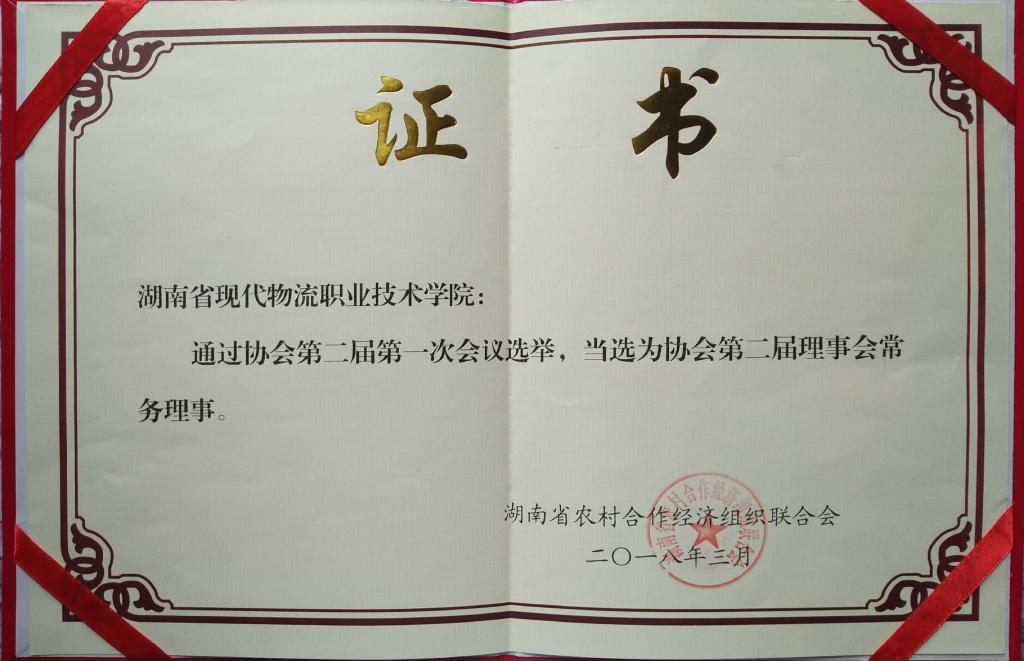 证 书
湖南省现代物流职业技术学院：
通过协会第二届第一次会议选举，当选为协会第二届理事会常
务理事。
湖南省农村合作经济组织联合会
二〇一八年三月